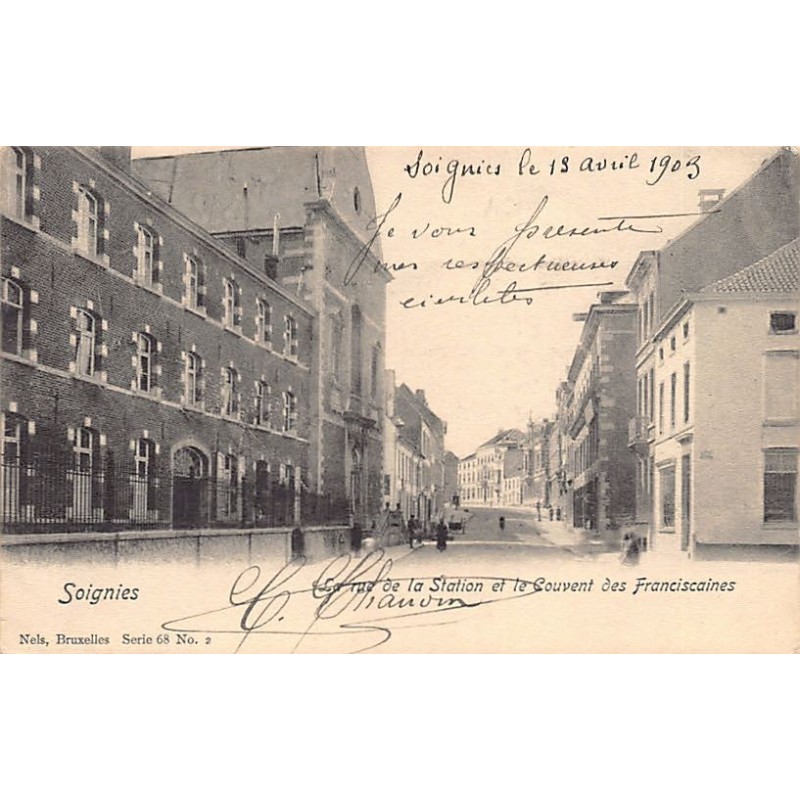 Soignies le 18 avril 1903
Je vous présente
mes respectueuses
civilités
Soignies
La rue de la Station et le Couvent des Franciscaines
Nels, Bruxelles Serie 68 No. 2